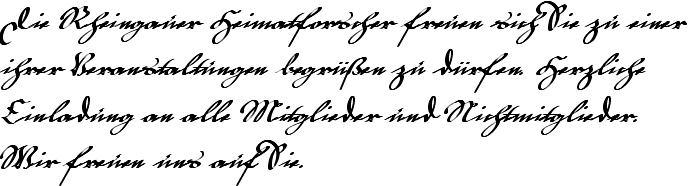 Die Rheingauer Heimatforscher freuen sich Sie zu einer
ihrer Veranstaltungen begrüßen zu dürfen. Herzliche
Einladung an alle Mitglieder und Nichtmitglieder.
Wir freuen uns auf Sie.